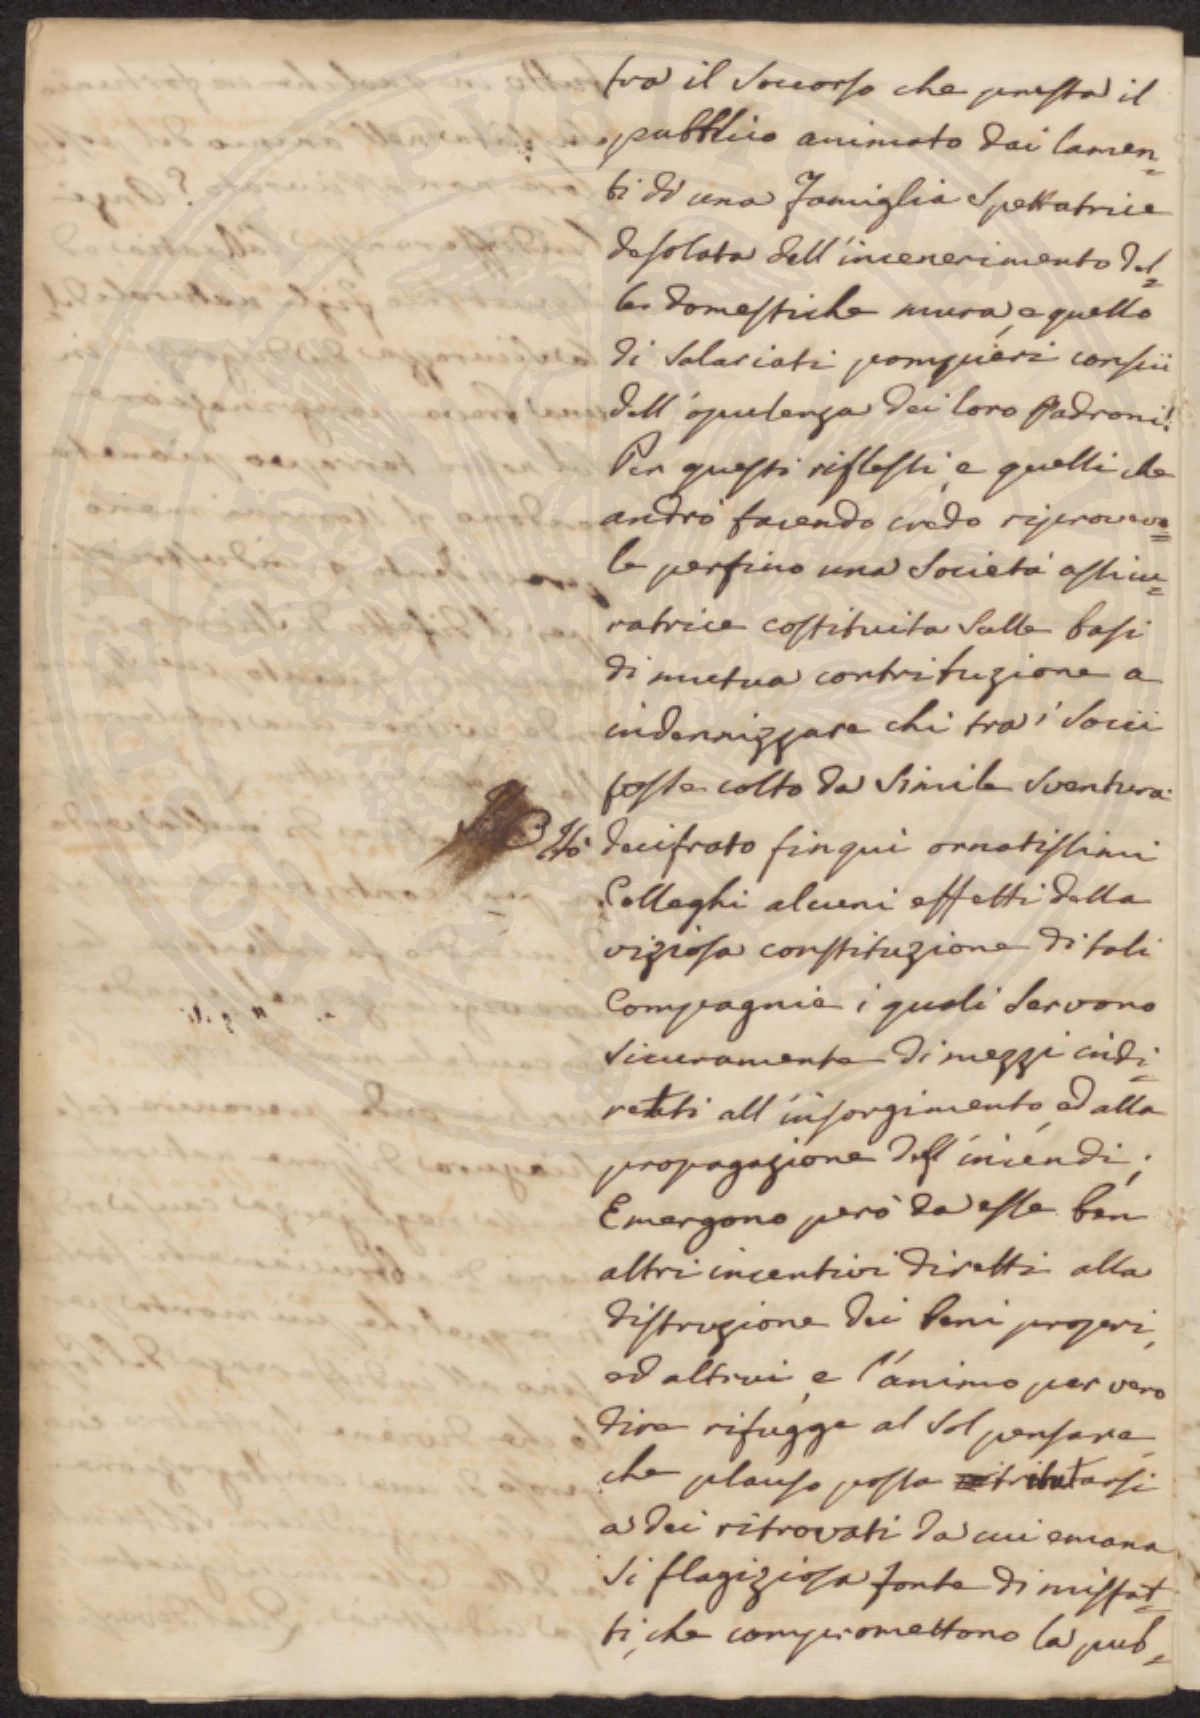 tra il soccorso che presta il
pubblico animato dai lamen=
ti di una famiglia spettatrice
desolata dell'incenerimento del=
le domestiche mura, e quello
di salariati pompieri conscii
dell'opulenza dei loro Padroni!
Per questi riflessi, e quelli che
andrò facendo credo riproveva=
le perfino una Società assicu=
ratrice costituita sulle basi
di mutua contribuzione a
indennizzare chi tra i socii
fosse colto da simile sventura.
Hò decifrato finqui ornatissimi
Colleghi alcuni effetti della
viziosa constituzione di tali
Compagnie i quali servono
sicuramente di mezzi indi=
retti all'insorgimento, ed alla
propagazione degl'incendi;
Emergono però da esse ben
altri incentivi diretti alla
distruzione dei beni propri,
ed altrui, e l'animo per vero
dire rifugge al sol pensare,
che plauso possa tributarsi
a dei ritrovati da cui emana
sì flagiziosa fonte di misfat=
ti, che compromettono la pub=